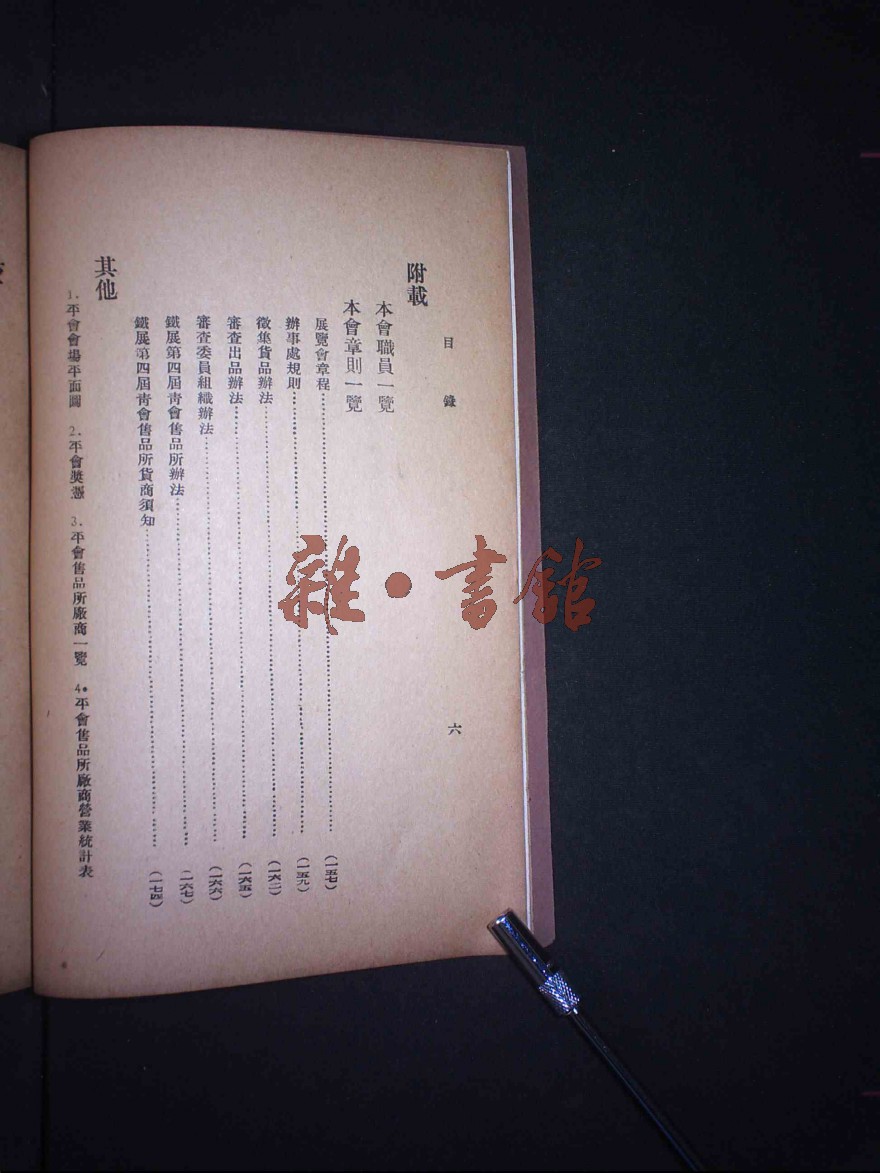 目錄
六
附載
本會職員一覽
本會章則一覽
展覽會章程……(一五七)
辦事處規則……(一五九)
徵集貨品辦法……(一六二)
審查出品辦法……(一六五)
審查委員組織辦法……(一六六)
鐵展第四屆青會售品所辦法……(一六七)
鐵展第四屆青會售品所貨商須知……(一七四)
其他
1.平會會場平面圖 2.平會獎憑 3.平會售品所廠商一覽 4.平會售品所廠商營業統計表
雜·書館